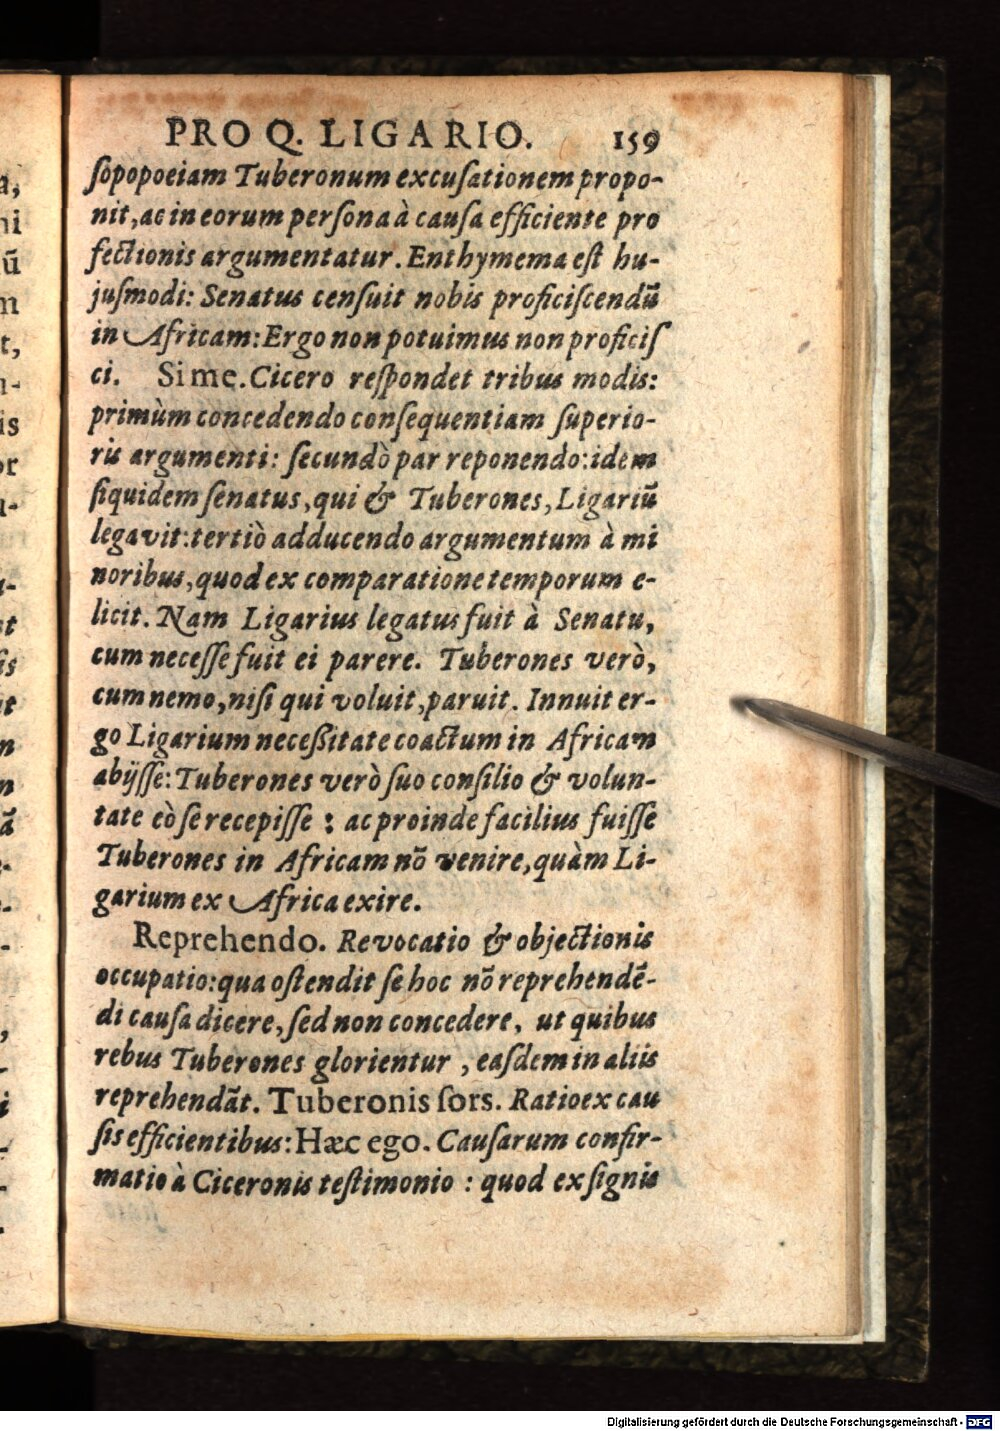 PRO Q. LIGARIO. 159
sopopoeiam Tuberonum excusationem propo-
nit, ac in eorum persona à causa efficiente pro
fectionis argumentatur. Enthymema est hu-
jusmodi: Senatus censuit nobis proficiscendũ
in Africam: Ergo non potuimus non proficis
ci. Si me. Cicero respondet tribus modis:
primùm concedendo consequentiam superio-
ris argumenti: secundò par reponendo: idem
siquidem senatus, qui & Tuberones, Ligariũ
legavit: tertiò adducendo argumentum à mi
noribus, quod ex comparatione temporum e-
licit. Nam Ligarius legatus fuit à Senatu,
cum necesse fuit ei parere. Tuberones verò,
cum nemo, nisi qui voluit, paruit. Innuit er-
go Ligarium necessitate coactum in Africam
abijsse: Tuberones verò suo consilio & volun-
tate eò se recepisse : ac proinde facilius fuisse
Tuberones in Africam nõ venire, quàm Li-
garium ex Africa exire.
Reprehendo. Revocatio & objectionis
occupatio: qua ostendit se hoc nõ reprehendẽ-
di causa dicere, sed non concedere, ut quibus
rebus Tuberones glorientur, easdem in aliis
reprehendãt. Tuberonis sors. Ratio ex cau
sis efficientibus: Hæc ego. Causarum confir-
matio à Ciceronis testimonio : quod ex signis
Digitalisierung gefördert durch die Deutsche Forschungsgemeinschaft - DFG